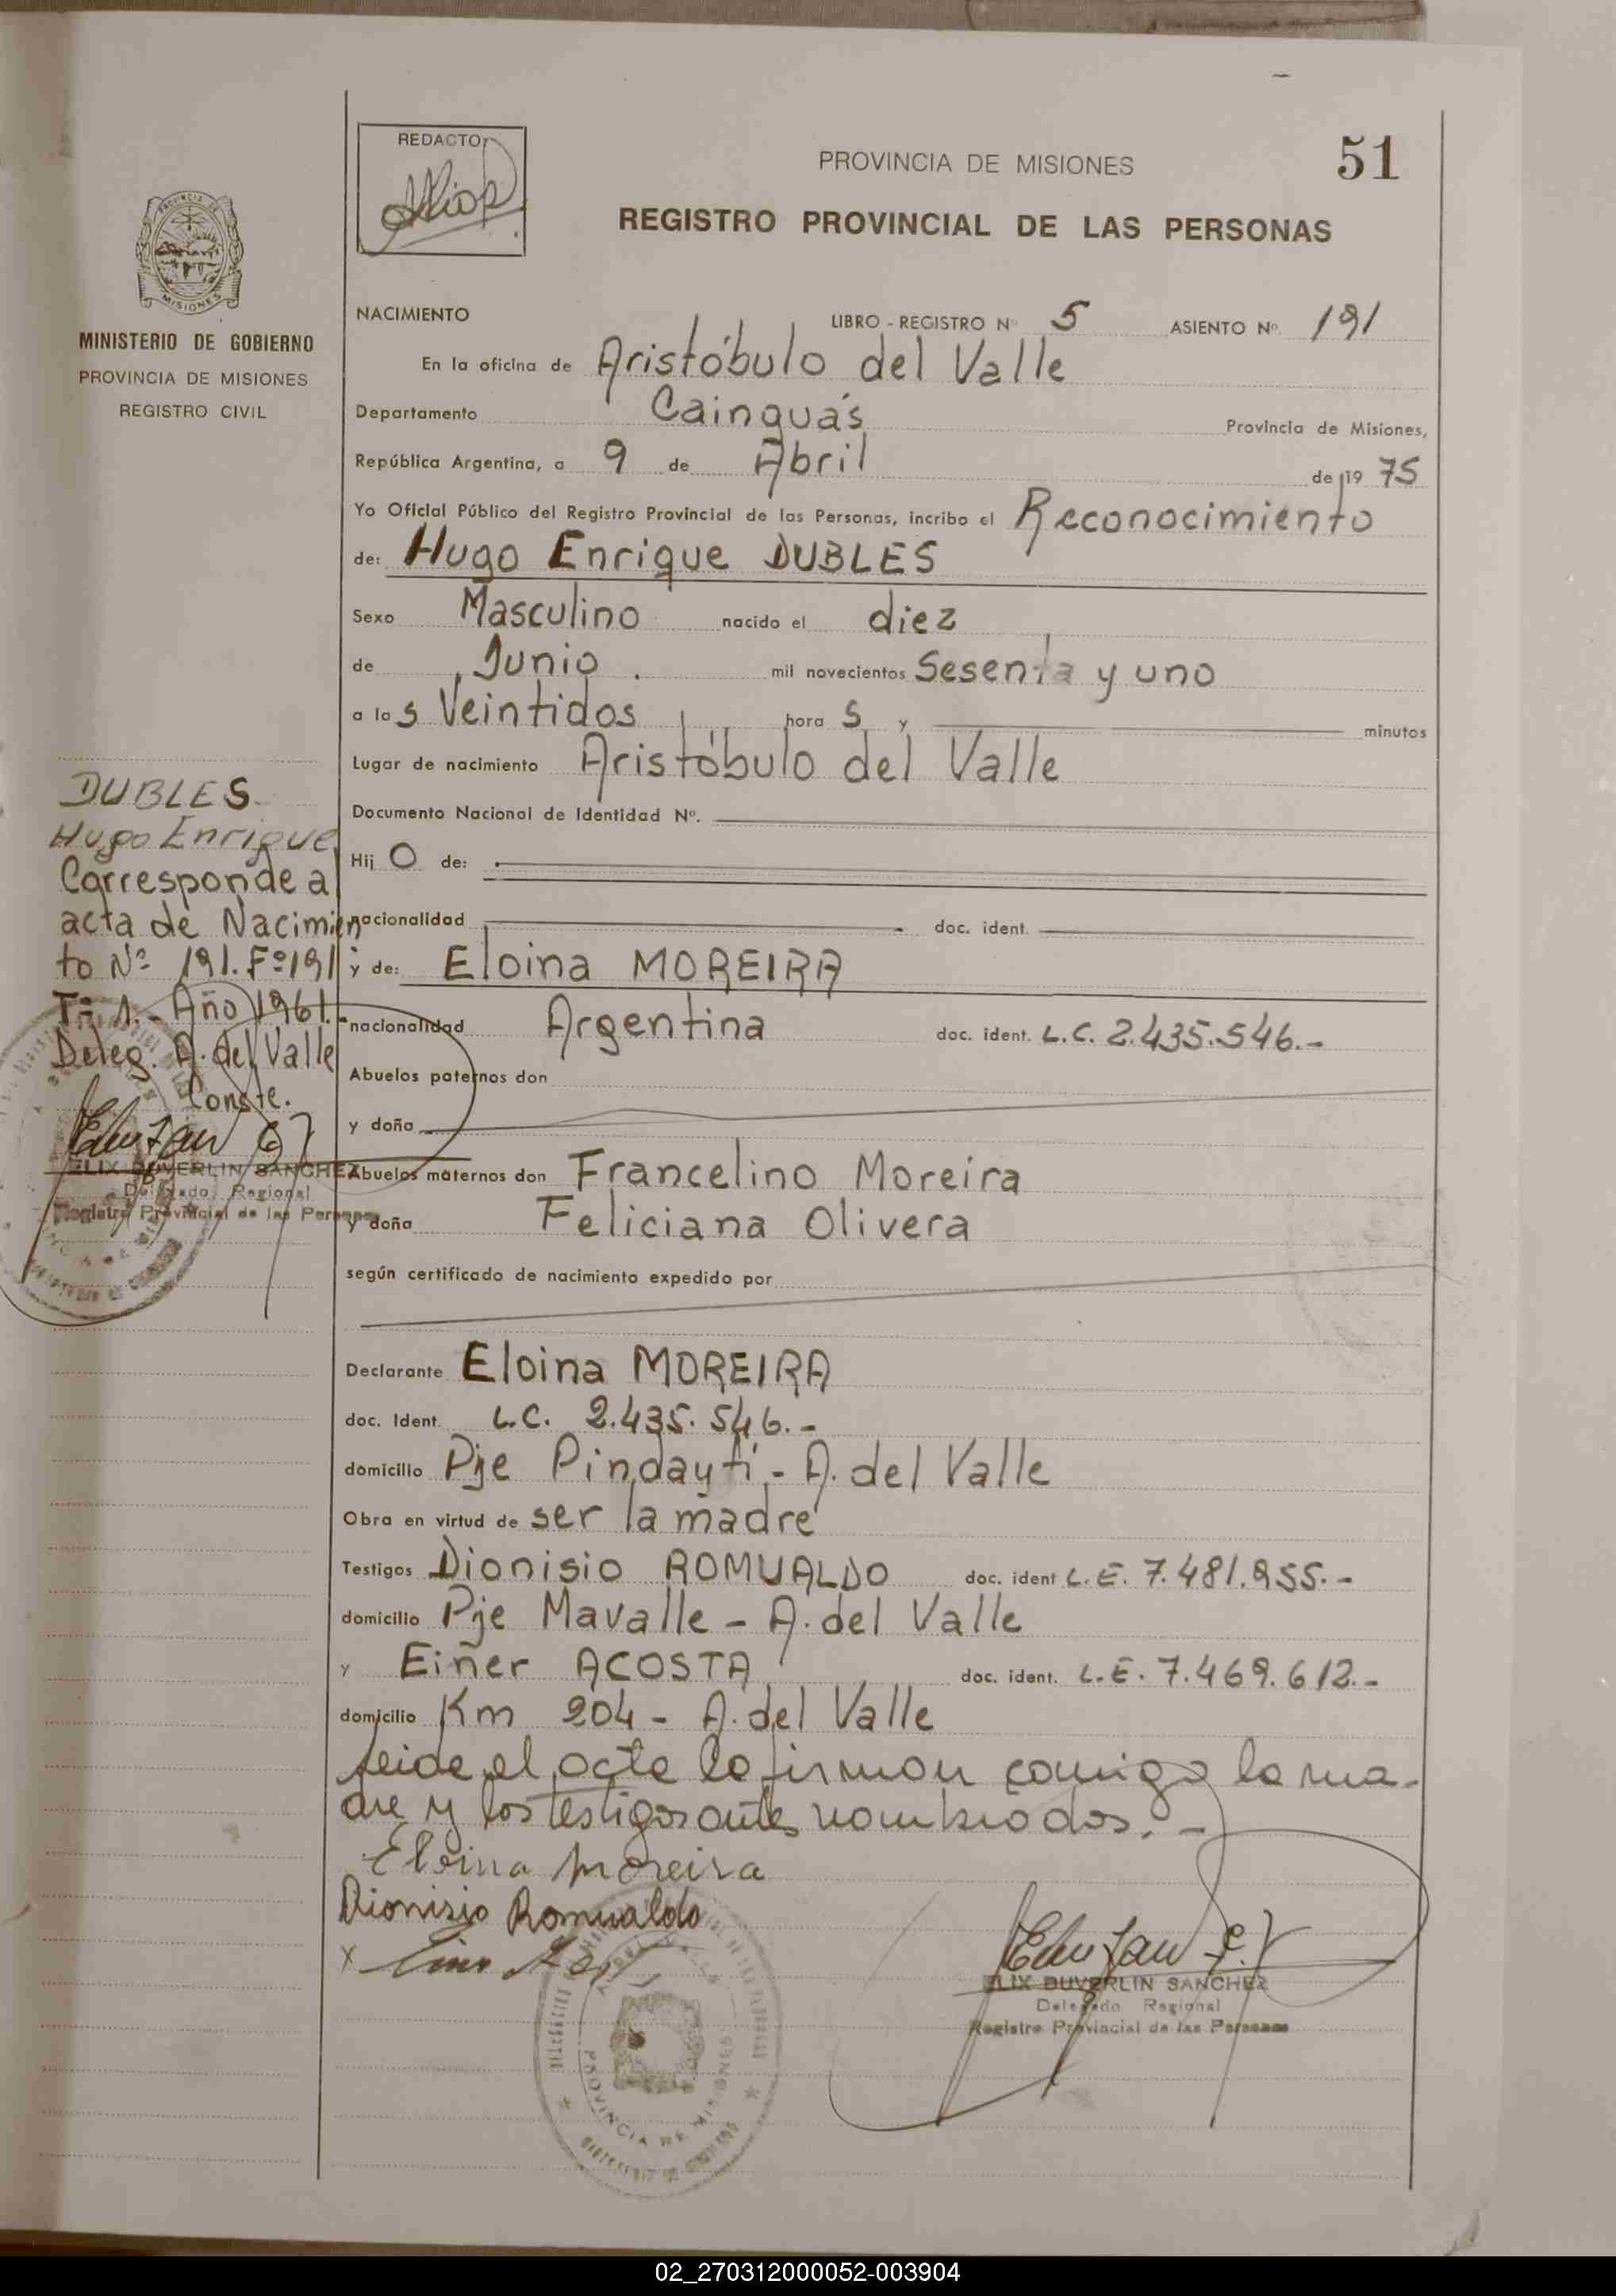 51
REDACTO:
PROVINCIA DE MISIONES
REGISTRO PROVINCIAL DE LAS PERSONAS
PROVINCIA DE
MISIONES
MINISTERIO DE GOBIERNO
PROVINCIA DE MISIONES
REGISTRO CIVIL
NACIMIENTO LIBRO - REGISTRO Nº 5 ASIENTO Nº. 191
En la oficina de Aristóbulo del Valle
Departamento Cainguás Provincia de Misiones,
República Argentina, a 9 de Abril de 19 75
Yo Oficial Público del Registro Provincial de las Personas, incribo el Reconocimiento
de: Hugo Enrique DUBLES
Sexo Masculino nacido el diez
de Junio. mil novecientos Sesenta y uno
a las Veintidos horas y minutos
Lugar de nacimiento Aristóbulo del Valle
Documento Nacional de Identidad Nº.
Hijo de:
nacionalidad doc. ident.
y de: Eloina MOREIRA
nacionalidad Argentina doc. ident. L.C. 2.435.546.-
Abuelos paternos don
y doña
Abuelos maternos don Francelino Moreira
y doña Feliciana Olivera
según certificado de nacimiento expedido por
Declarante Eloina MOREIRA
doc. Ident. L.C. 2.435.546.-
domicilio Pje Pindaytí - A. del Valle
Obra en virtud de ser la madre
Testigos Dionisio ROMUALDO doc. ident L.E. 7.481.955.-
domicilio Pje Mavalle - A. del Valle
y Einer ACOSTA doc. ident. L.E. 7.469.612.-
domicilio Km 204 - A. del Valle
leide el acta la firman comigo la ma-
dre y los testigos antes nombrados.-
Eloina Moreira
Dionisio Romualdo
X
ELIX DUVERLIN SANCHEZ
Delegado Regional
Registro Provincial de las Personas
PROVINCIA DE MISIONES
DUBLES
Hugo Enrique
Corresponde a
acta de Nacimien
to Nº 191. Fº 191
Tº 1.- Año 1961.-
Deleg. A. del Valle
Conste.
ELIX DUVERLIN SANCHEZ
Delegado Regional
Registro Provincial de las Personas
02_270312000052-003904